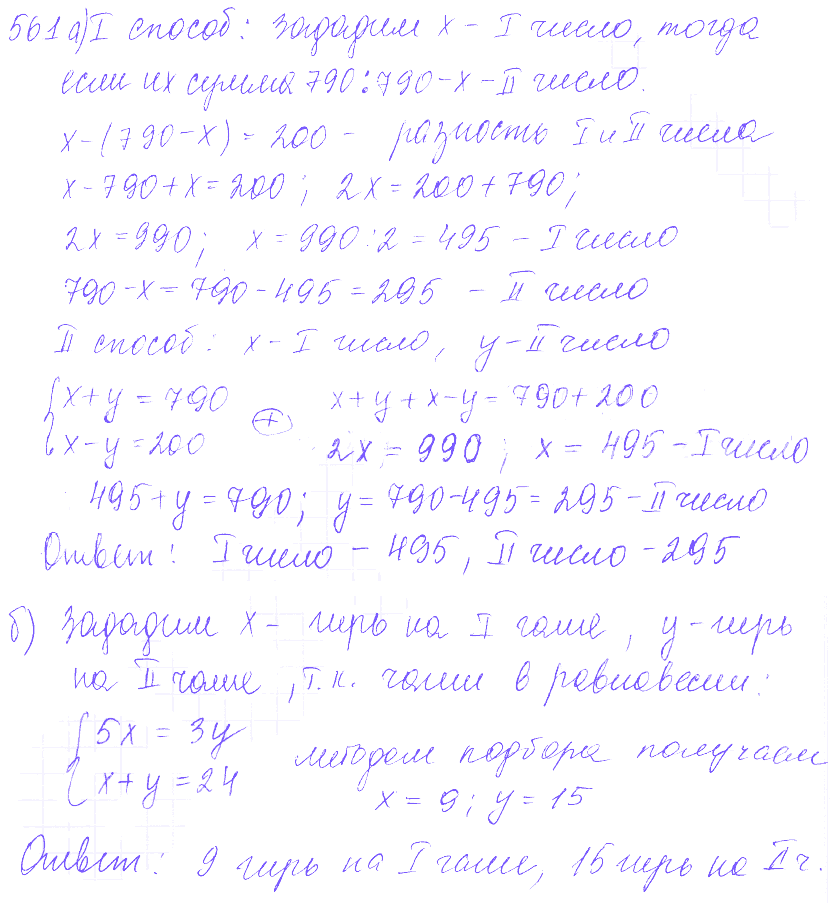 561 а) I способ: зададим x - I число, тогда
если их сумма 790: 790 - x - II число.
x - (790 - x) = 200 - разность I и II числа
x - 790 + x = 200; 2x = 200 + 790;
2x = 990; x = 990 : 2 = 495 - I число
790 - x = 790 - 495 = 295 - II число
II способ: x - I число, y - II число
{ x + y = 790 (+) x + y + x - y = 790 + 200
{ x - y = 200 2x = 990; x = 495 - I число
495 + y = 790; y = 790 - 495 = 295 - II число
Ответ: I число - 495, II число - 295
б) Зададим x - гирь на I чаше, y - гирь
на II чаше, т.к. чаши в равновесии:
{ 5x = 3y
{ x + y = 24 методом подбора получаем
x = 9; y = 15
Ответ: 9 гирь на I чаше, 15 гирь на II ч.